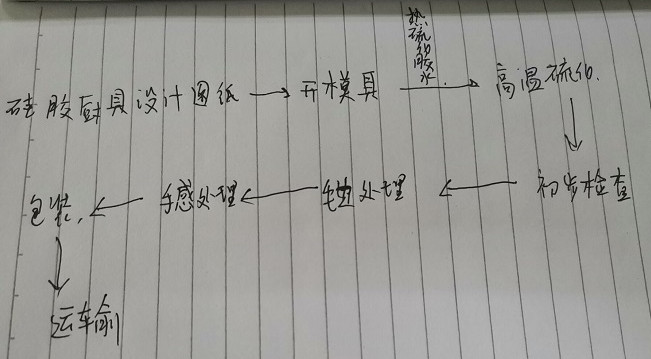 硅胶厨具设计图纸 → 开模具 → 高温硫化.
热硫化胶水
初步检查
毛边处理 ←
手感处理 ←
包装. ←
运输